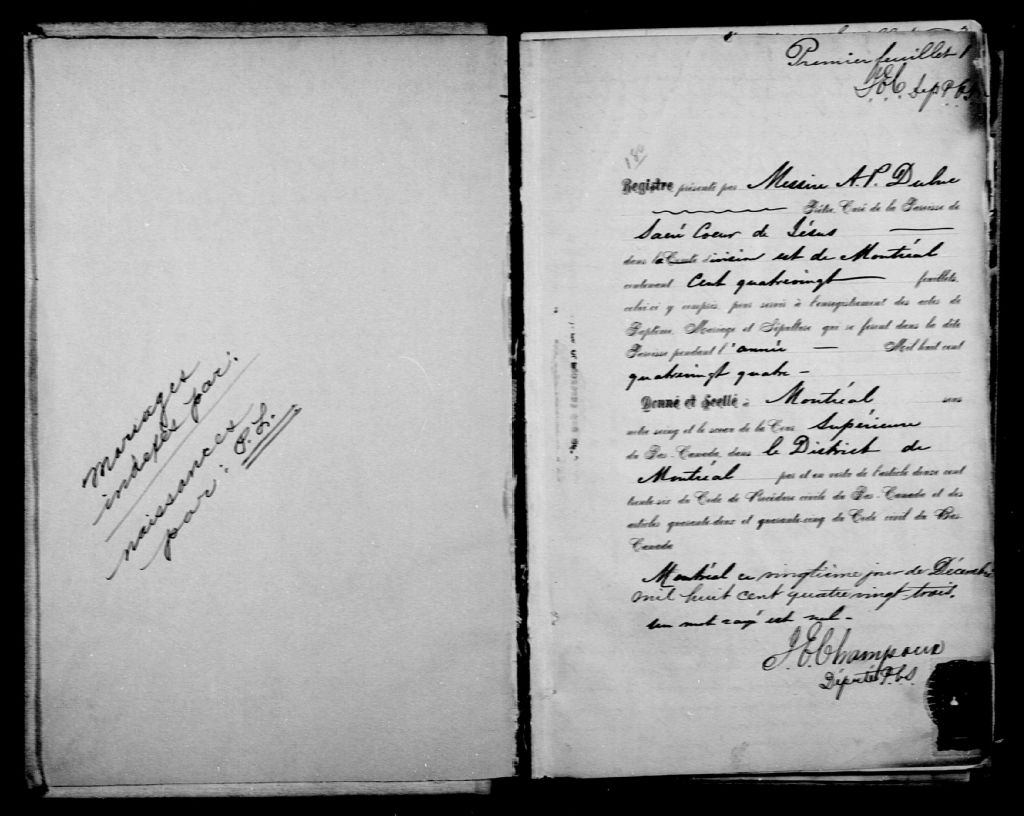 mariages
indexés par:
naissances
par: P. L.
Premier feuillet 1
Dep P.C.S.
180
Registre présenté par Messire A. P. Dubuc
Prêtre, Curé de la Paroisse de
Sacré Coeur de Jésus
dans la Comté division est de Montréal
contenant Cent quatrevingt feuillets,
celui-ci y compris, pour servir à l'enregistrement des actes de
Baptême, Mariage et Sépulture qui se feront dans la dite
Paroisse pendant l'année — Mil huit cent
quatrevingt quatre —
Donné et Scellé à Montréal sous
notre seing et le sceau de la Cour Supérieure
du Bas-Canada, dans le District de
Montréal par et en vertu de l'article douze cent
trente-six du Code de Procédure civile du Bas-Canada et des
articles quarante-deux et quarante-cinq du Code civil du Bas-
Canada
Montréal ce vingtième jour de Décembre
mil huit cent quatre vingt trois.
Un mot rayé est nul —
J. E. Champoux
Député P.C.S.